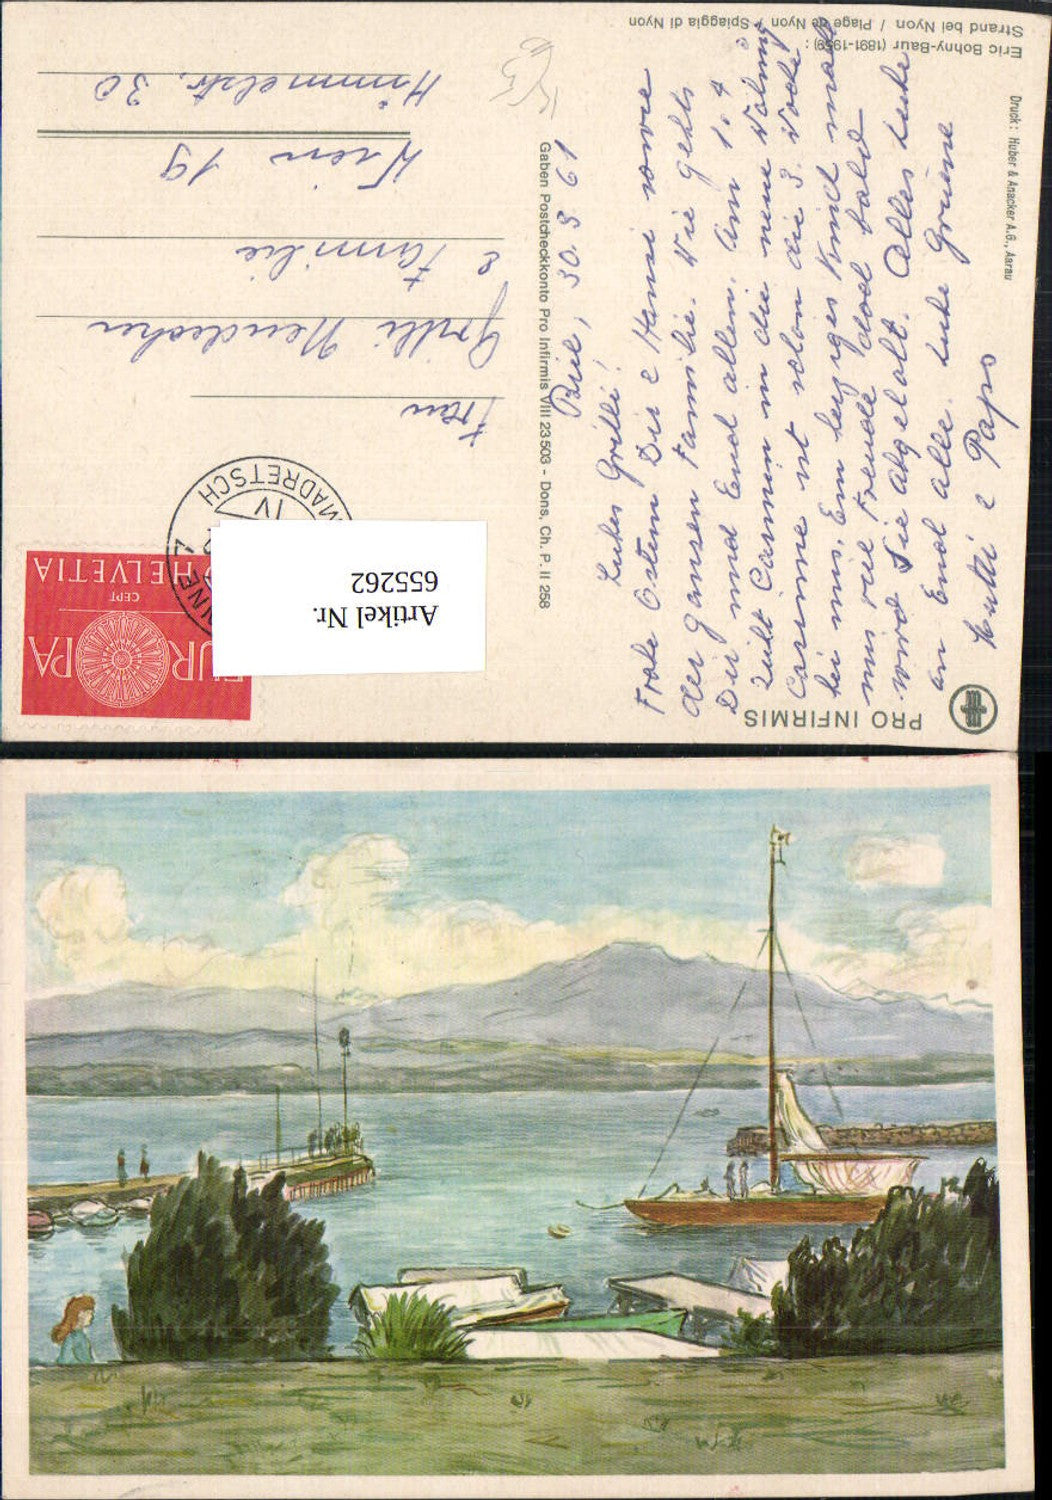 Eric Bohny-Baur (1891-1959):
Strand bei Nyon / Plage de Nyon / Spiaggia di Nyon
Druck: Huber & Anacker A.G., Aarau
PRO INFIRMIS
Gaben Postcheckkonto Pro Infirmis VIII 23503 - Dons, Ch. P. II 258
Biel, 30. 3. 61
Liebes Gritli!
Frohe Ostern Dir e Hansi sowie
der ganzen Familie. Wie gehts
Dir und Eud allen. Am 1. 4
zieht Carmin in die neue Wohnung
Carinne ist schon die 3. Woche
bei mir. Ein herziges Kind macht
mir viel Freude doch bald
wird Sie abgeholt. Alles Liebe
an Eud alle. Liebe Grüsse
Mutti e Papo
Frau
Gritli Neudecker
e Familie
Wien 19
Himmelstr. 30
MADRETSCH
IV
HELVETIA
CEPT
EUROPA
Artikel Nr.
655262